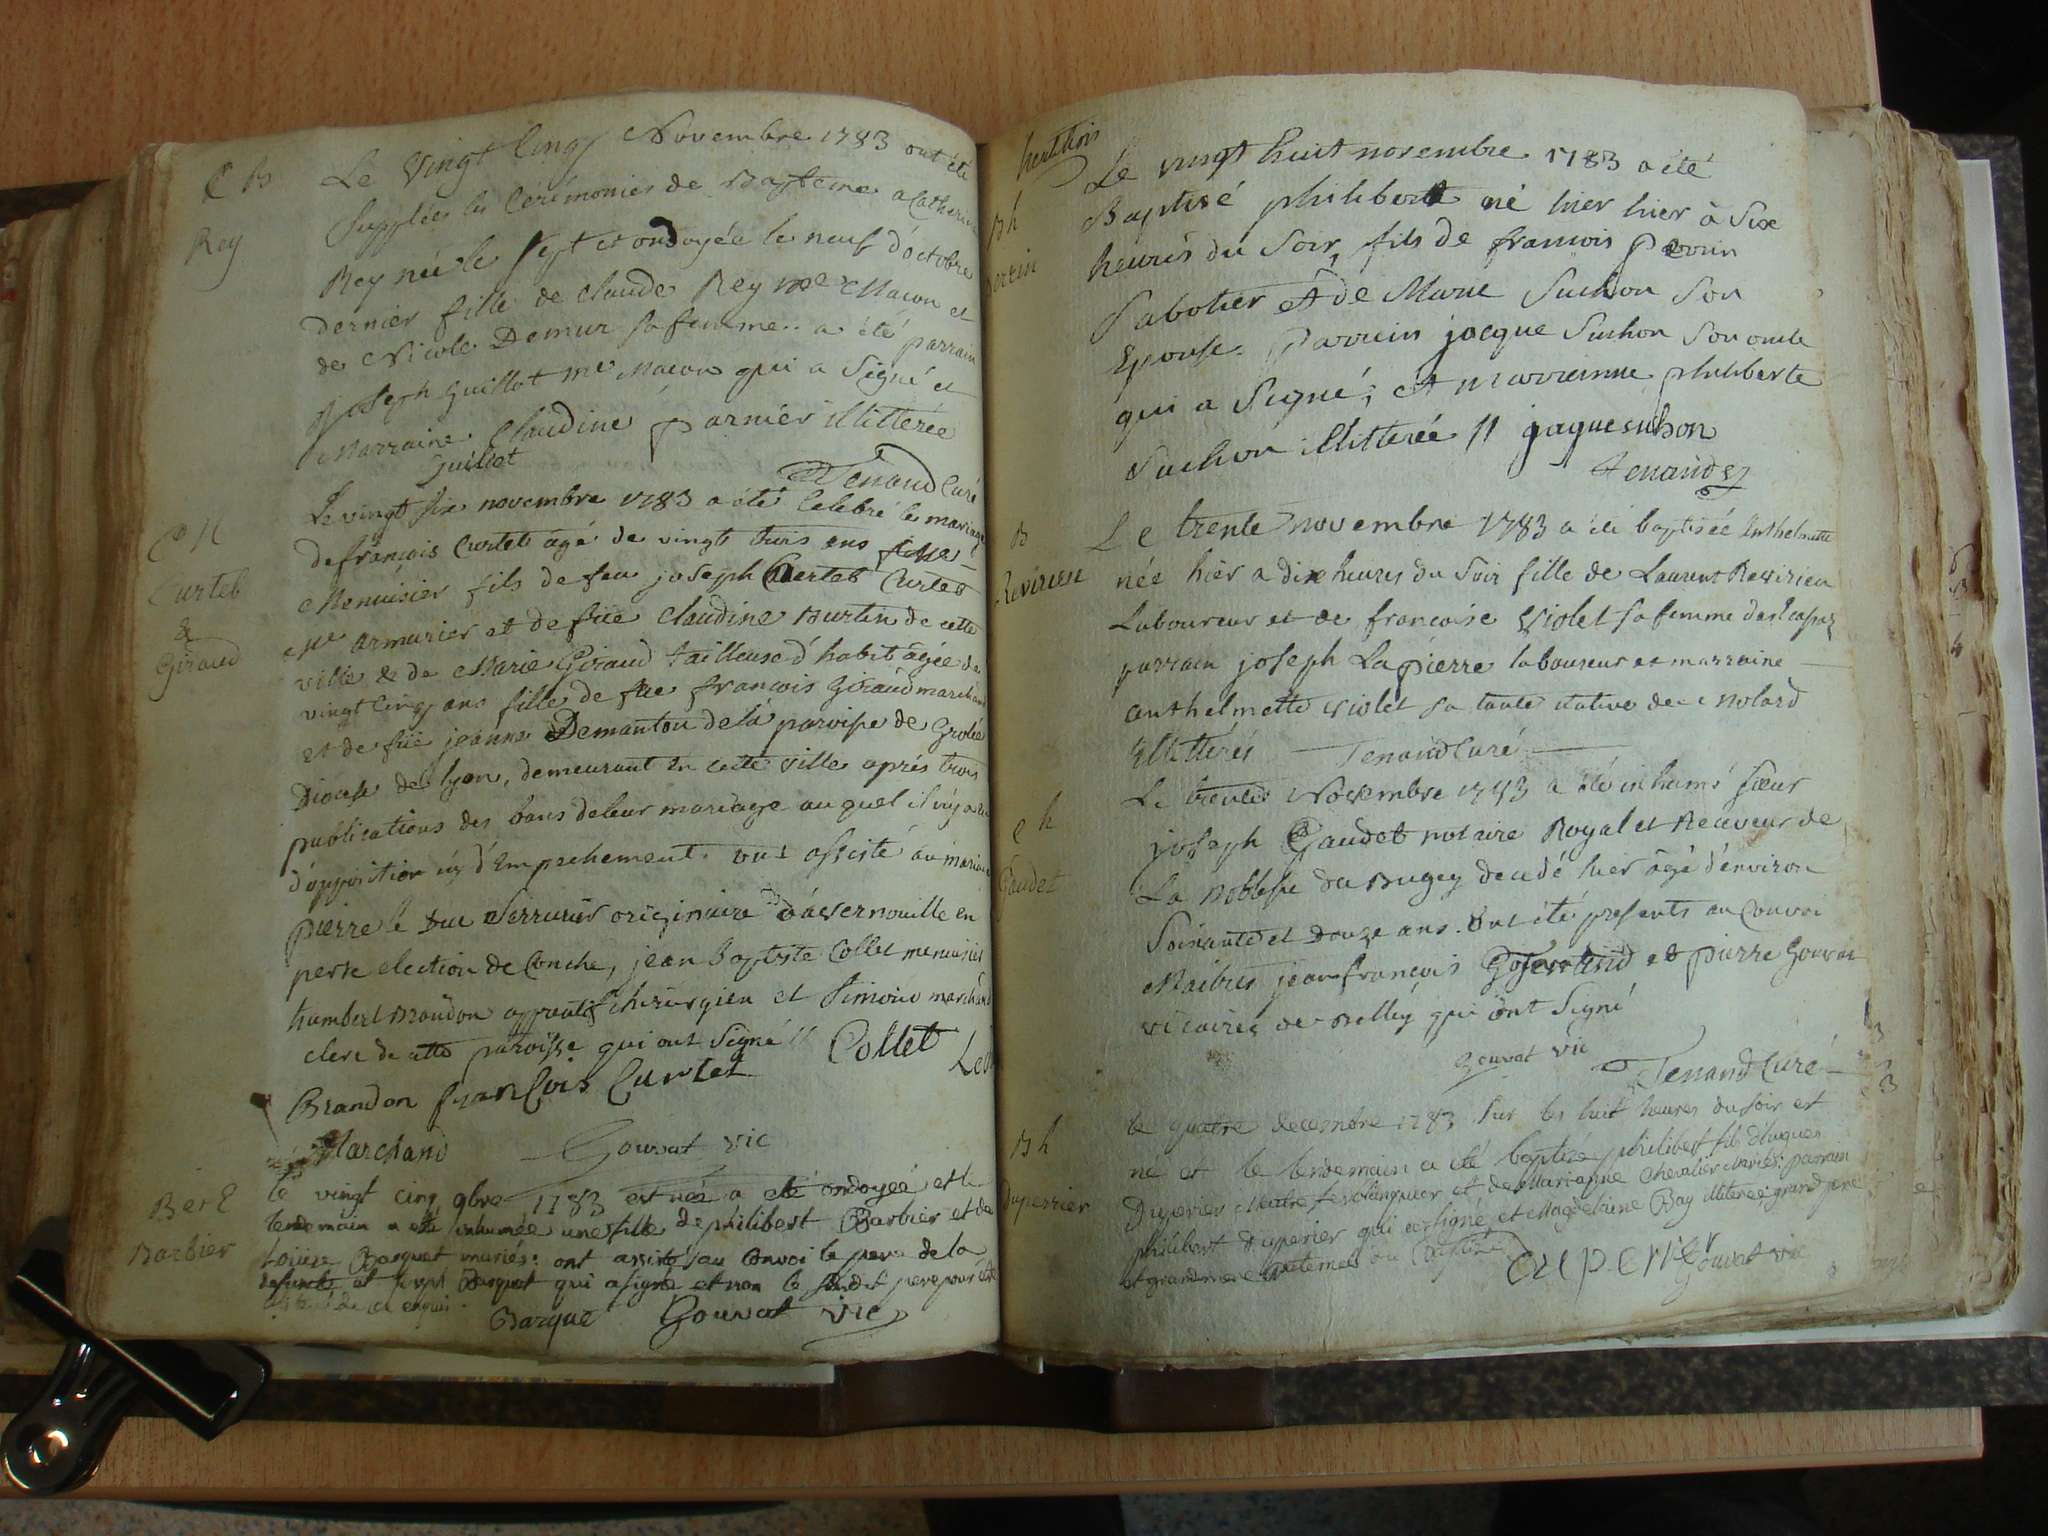 C B
Rey
Le Vingt Cinq Novembre 1783 ont été
Supplées les Cérémonies de Bapteme a Catherine
Rey née le Sept et ondoyée le neuf d'octobre
dernier fille de Claude Rey me Macon et
de Nicole Demur sa femme.. a été parrain
Joseph Guillot me Macon qui a Signé et
Marraine Claudine parnier illitterée
Guillot
Tenand Curé
C N
Curteb
&
Giraud
Le vingt Six novembre 1783 a été Celebré le mariage
de françois Curtet âgé de vingt trois ans
Menuisier fils de feu joseph Curteb
me armurier et de füe Claudine Burtin de cette
ville & de Marie Giraud tailleuse d'habit âgée de
vingt Cinq ans fille de feu françois Giraud marchand
et de füe jeanne Demantou de la paroisse de Grolée
Diocese de lyon, demeurant en cette ville après trois
publications des bans de leur mariage au quel il n'y a eu
d'opposition ny d'Empechement. ont assisté au mariage
pierre le Duc Serrurier originaire
perse election de Conche, jean Baptiste Collet menuisier
humbert apprentif chirurgien et Simoine marchand
clerc de cette paroisse qui ont Signé //
Collet
Brandon françois Curtet
Marchand Gouvat vic
Ber E
Barbier
le vingt cinq 9bre 1783 est née a été ondoyée et le
lendemain a été inhumée une fille de philibert Barbier et de
Louise Basquet mariés: ont assisté au Convoi le pere de la
defuncte et Basquet qui a signé et non le pere pour être
de ce enquis
Barque Gouvat vic
huit trois
B h
perrin
Le vingt huit novembre 1783 a été
Baptisé philibert né hier hier à Six
heures du Soir, fils de francois perrin
Sabotier et de Marie Suchon Son
Epouse. Parrein jacque Suchon Son oncle
qui a Signé; et Marreinne philiberte
Suchon illitterée // jaquesuhon
Tenand
B
Revirieu
Le trente novembre 1783 a été baptisée Anthelmette
née hier a dix heures du Soir fille de Laurent Revirieu
Laboureur et de francoise Violet sa femme
parrain joseph Lapierre laboureur et marraine
anthelmette Violet sa tante native de
illitterés Tenand Curé
e h
Gaudet
Le trente Novembre 1783 a été inhumé sieur
joseph Gaudet notaire Royal et Receveur de
La noblesse du Bugey decedé hier âgé d'environ
Soixante et Douze ans. Ont été presents au Convoi
Maitres jean françois et pierre Gouvat
vicaires de Belley qui ont Signé
Gouvat vic
Tenand Curé
B h
Duperrier
le quatre decembre 1783 Sur les huit heures du soir est
né et le lendemain a été baptisé philibert fils d'hugues
Duperier et de Marianne Chevalier mariés: parrain
philibert duperier qui a signé et Magdeleine Bay illiterée grand pere
et grand mere
duperrier
Gouvat vic